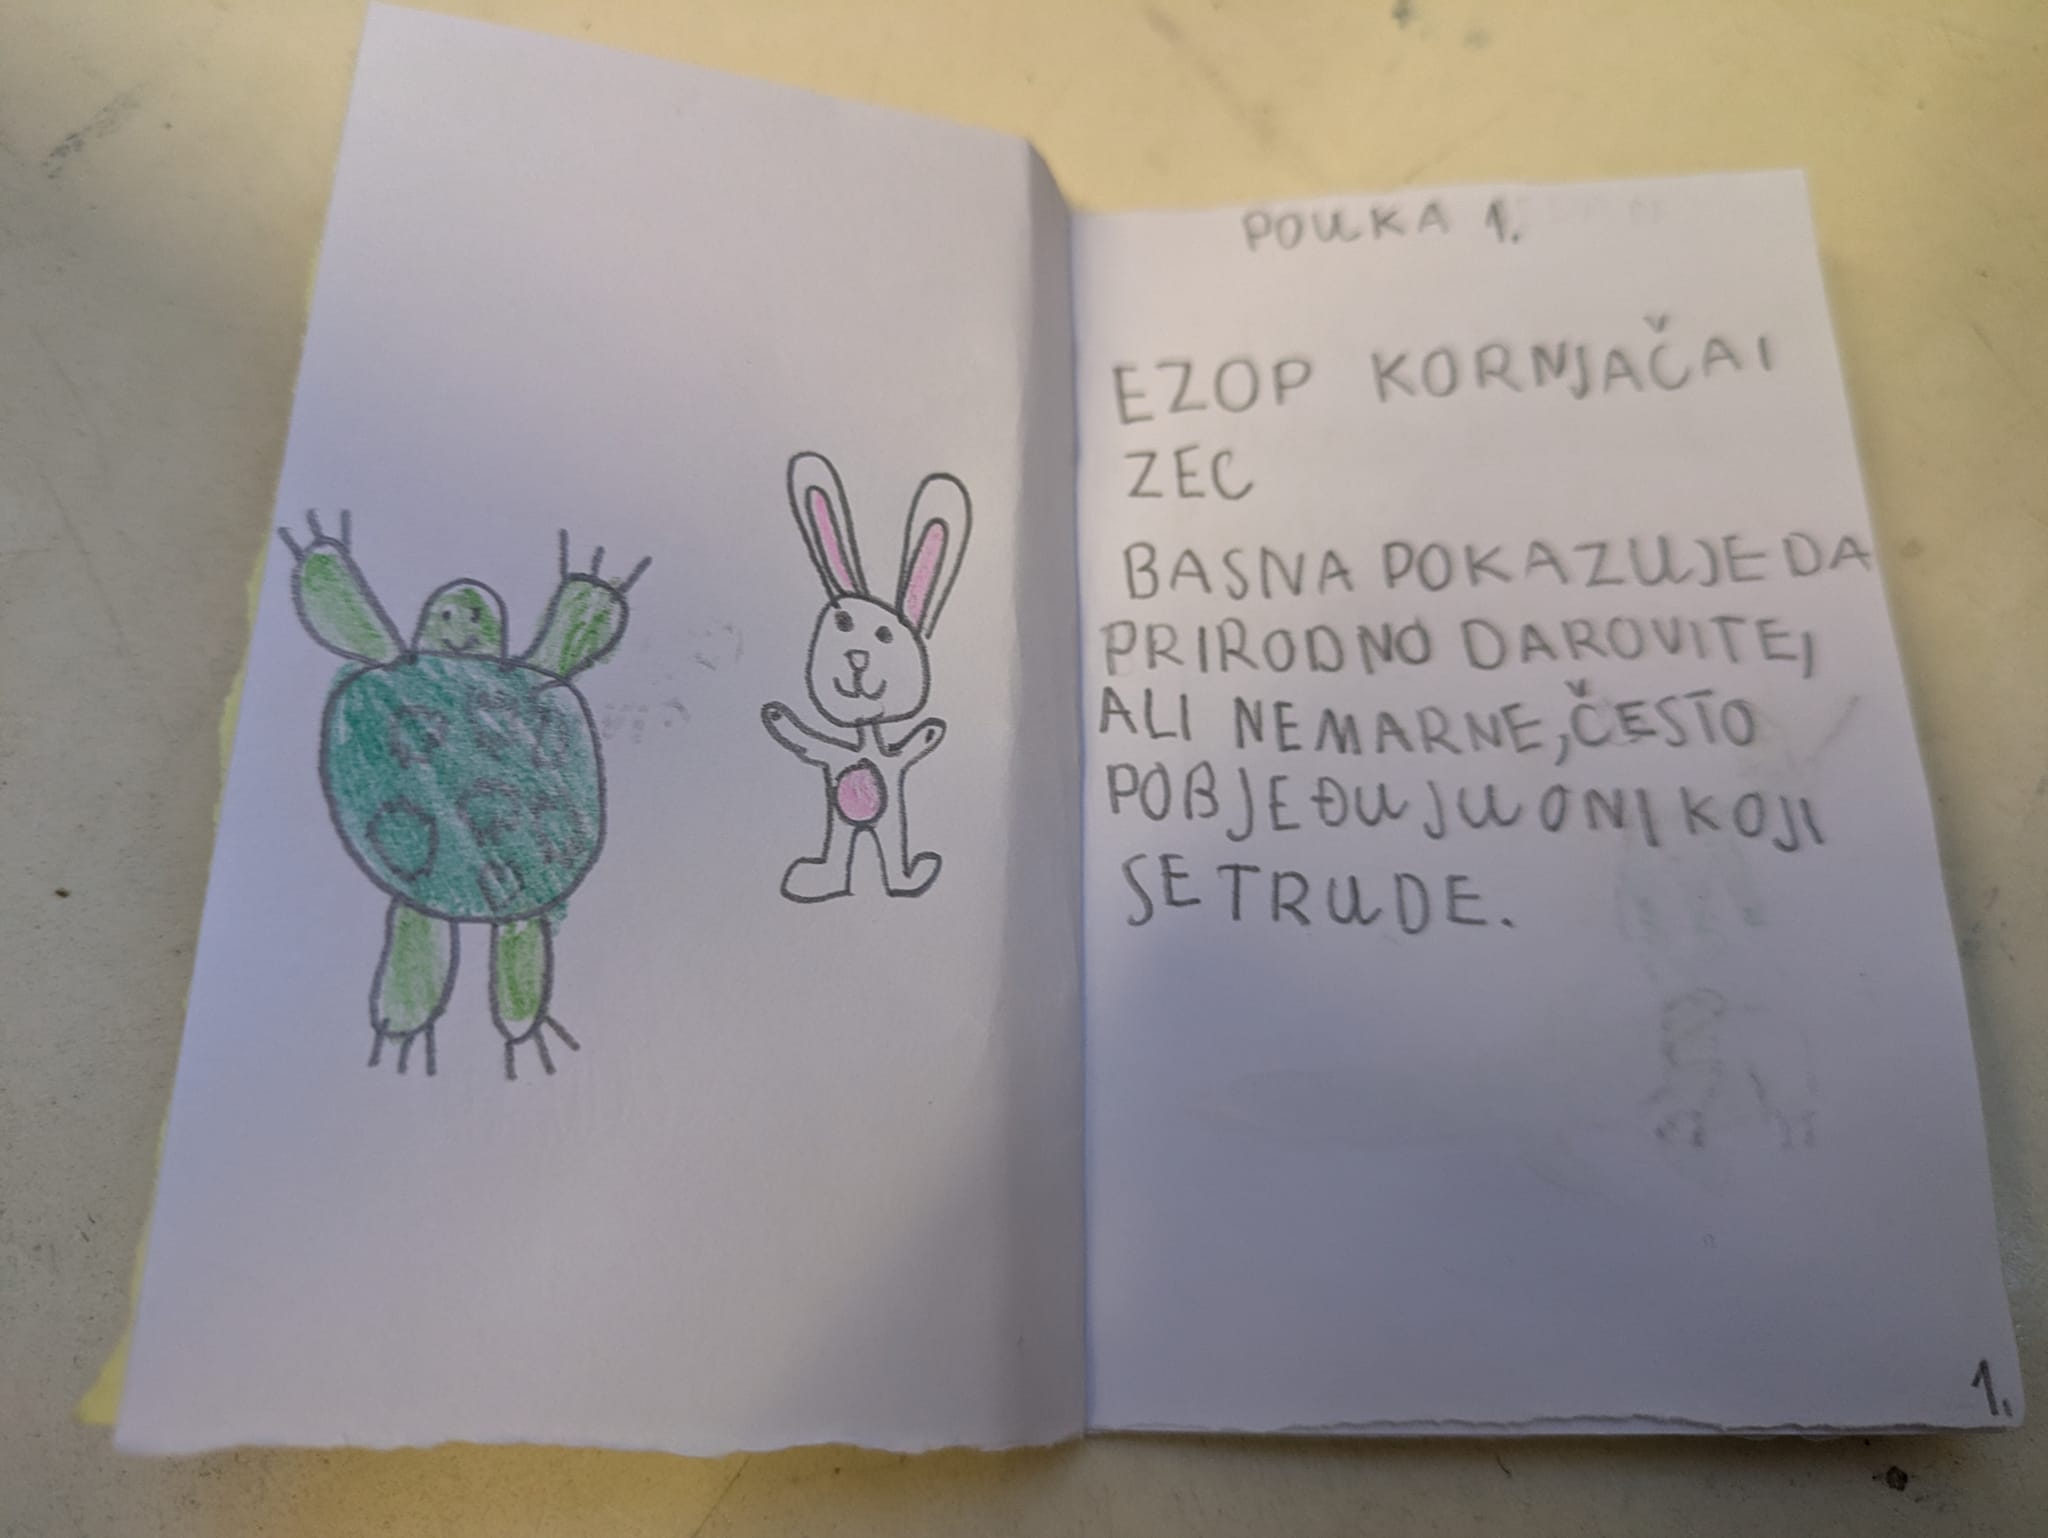 POUKA 1.
EZOP KORNJAČA I
ZEC
BASNA POKAZUJE DA
PRIRODNO DAROVITE,
ALI NEMARNE, ČESTO
POBJEĐUJU ONI KOJI
SE TRUDE.
1.